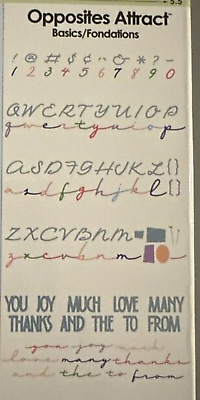 5.5
Opposites Attract™
Basics/Fondations
! @ # $ ¢ ^ & * ? -
1 2 3 4 5 6 7 8 9 0
QWERTYUIOP
qwertyuiop
ASDFGHJKL[]
asdfghjkl[]
ZXCVBNM
zxcvbnm
YOU JOY MUCH LOVE MANY
THANKS AND THE TO FROM
you joy much
love many thanks
and the to from